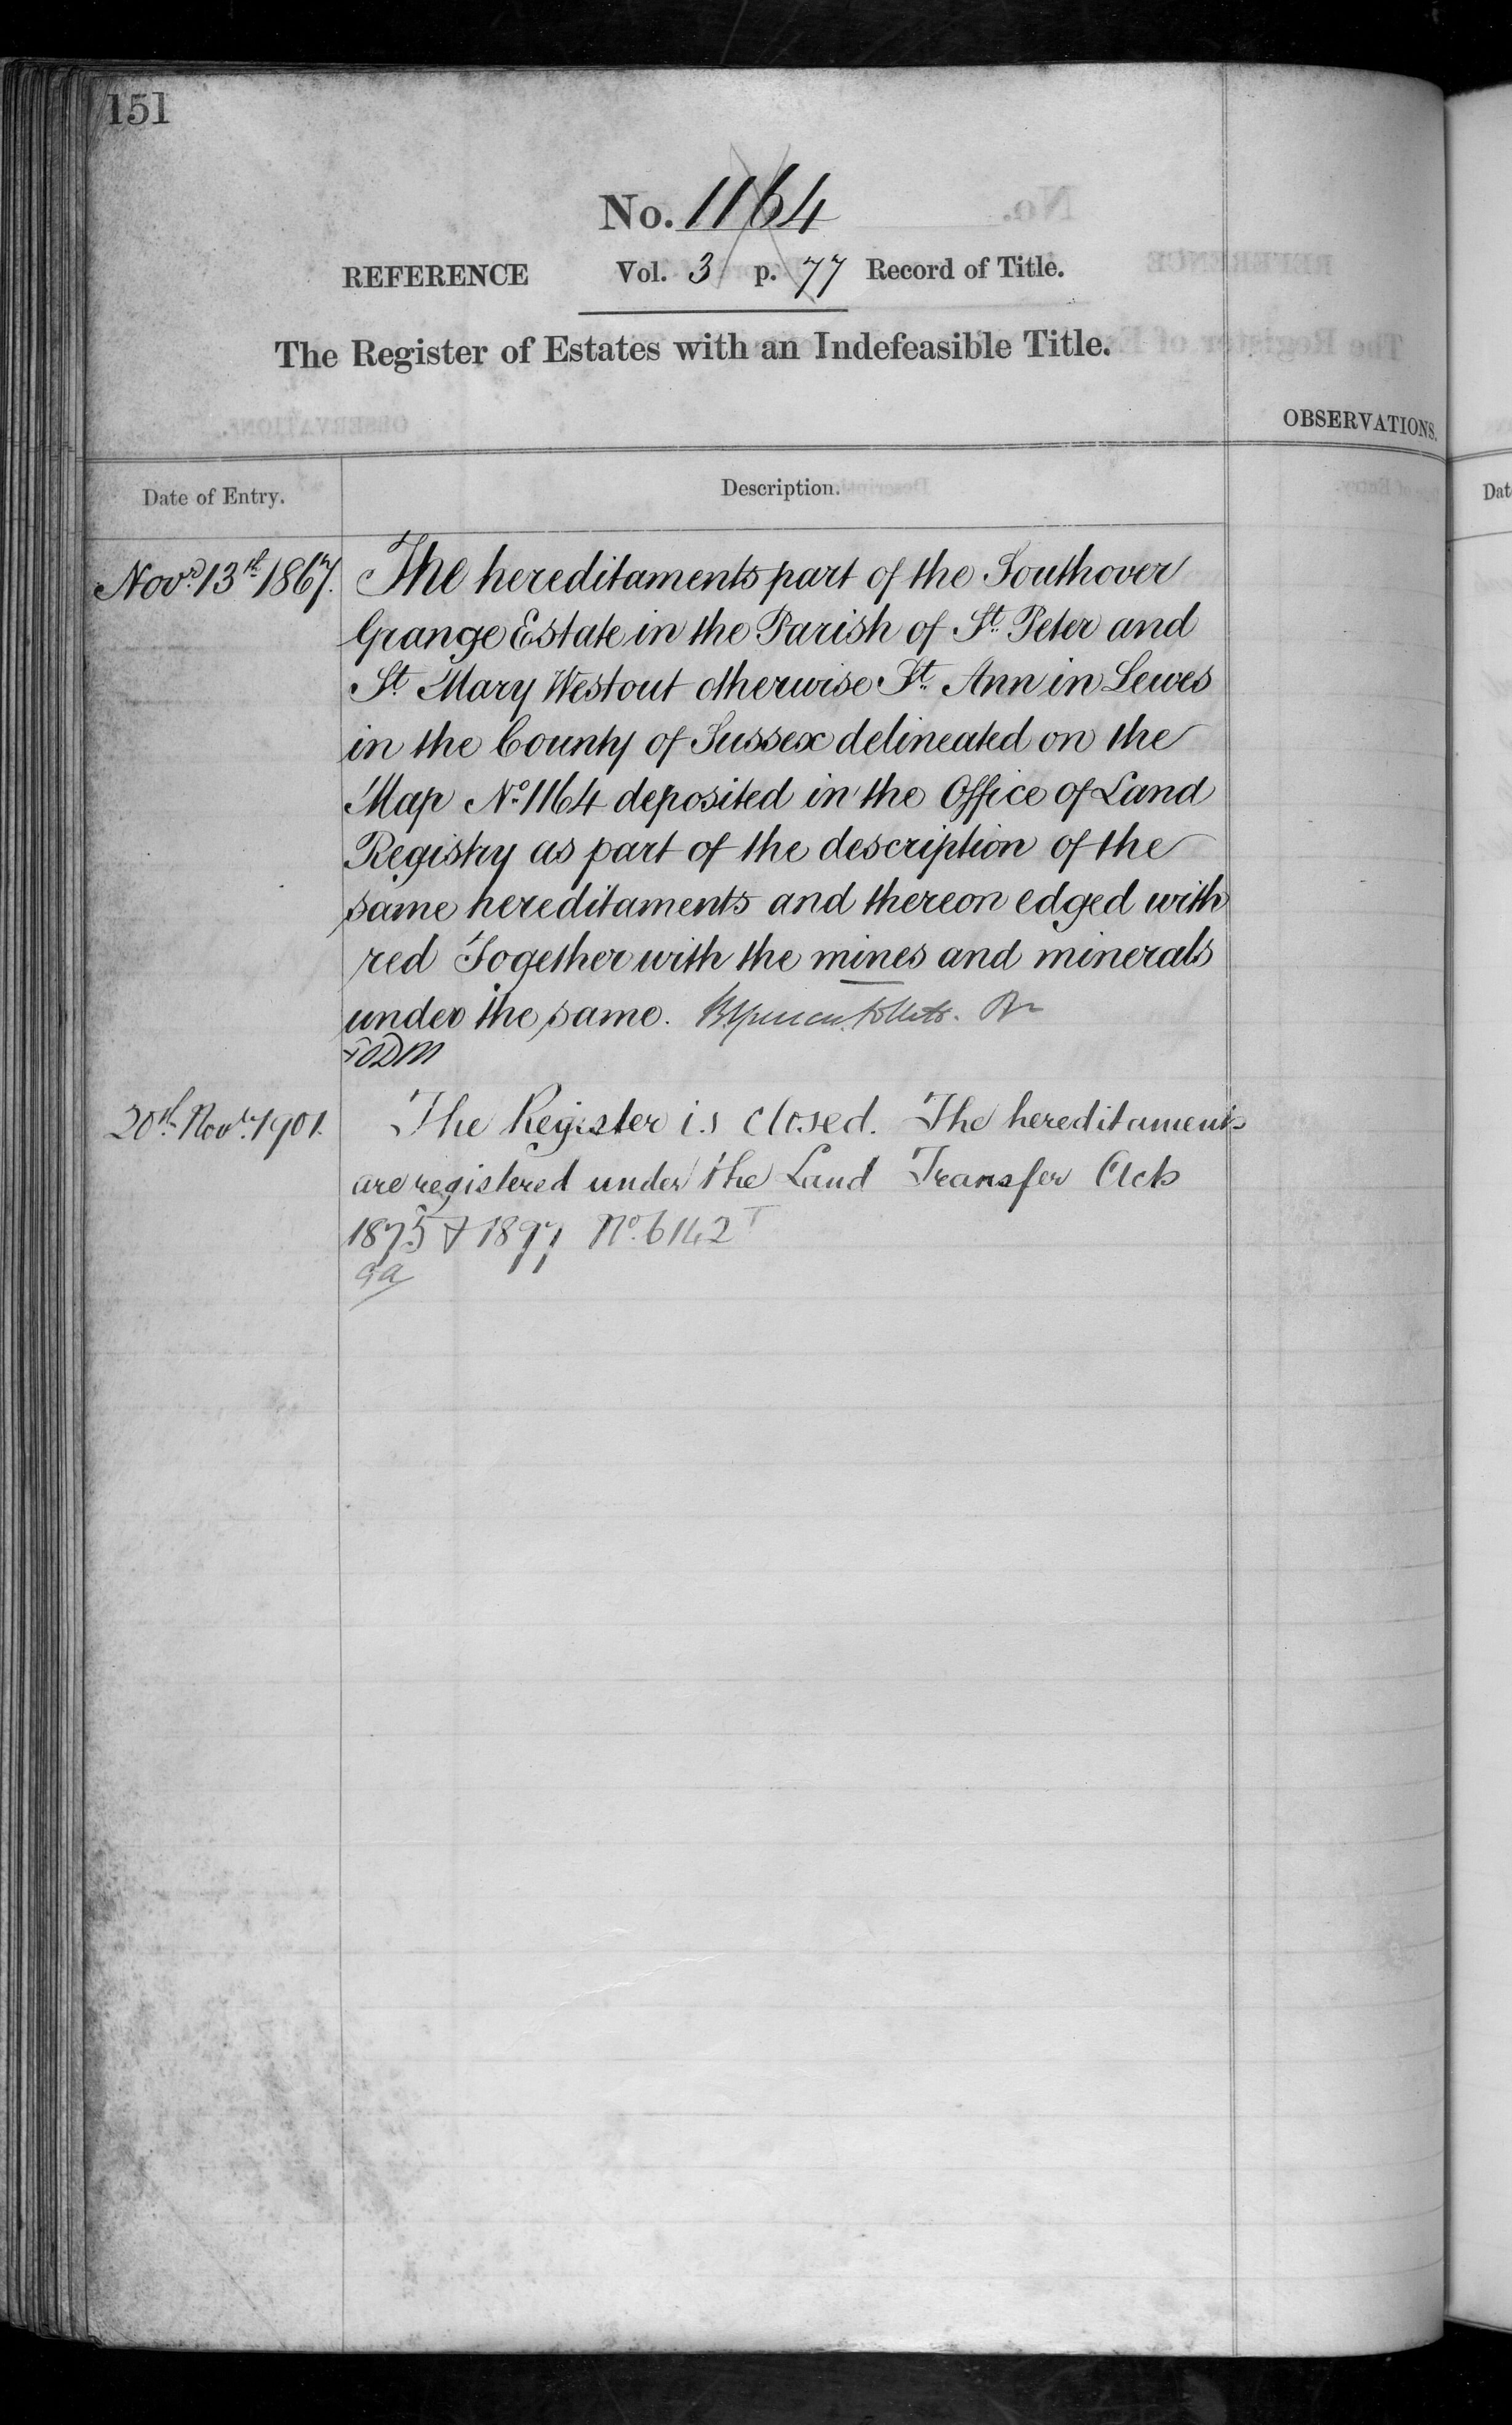 151
No. 1164
REFERENCE Vol. 3 p. 77 Record of Title.
The Register of Estates with an Indefeasible Title.
OBSERVATIONS.
Date of Entry. Description.
Novr. 13th 1867. The hereditaments part of the Southover
Grange Estate in the Parish of St. Peter and
St. Mary Westout otherwise St. Ann in Lewes
in the County of Sussex delineated on the
Map No. 1164 deposited in the Office of Land
Registry as part of the description of the
same hereditaments and thereon edged with
red Together with the mines and minerals
under the same.
20th Novr. 1901. The Register is closed. The hereditaments
are registered under the Land Transfer Acts
1875 & 1897 No. 6142
Dat